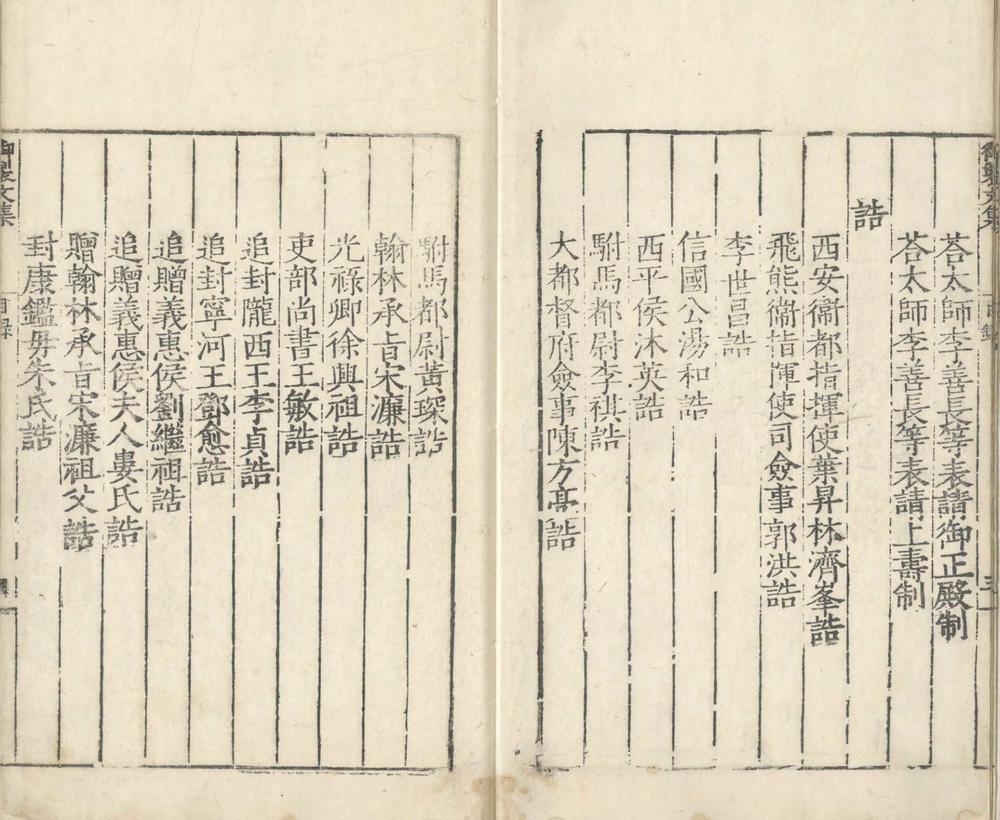 荅太師李善長等表請御正殿制
荅太師李善長等表請上壽制
誥
西安衞都指揮使葉昇林濟峯誥
飛熊衞指揮使司僉事郭洪誥
李世昌誥
信國公湯和誥
西平侯沐英誥
駙馬都尉李祺誥
大都督府僉事陳方亮誥
駙馬都尉黃琛誥
翰林承旨宋濂誥
光祿卿徐興祖誥
吏部尚書王敏誥
追封隴西王李貞誥
追封寧河王鄧愈誥
追贈義惠侯劉繼祖誥
追贈義惠侯夫人婁氏誥
贈翰林承旨宋濂祖父誥
封康鑑母朱氏誥
御製文集
目録